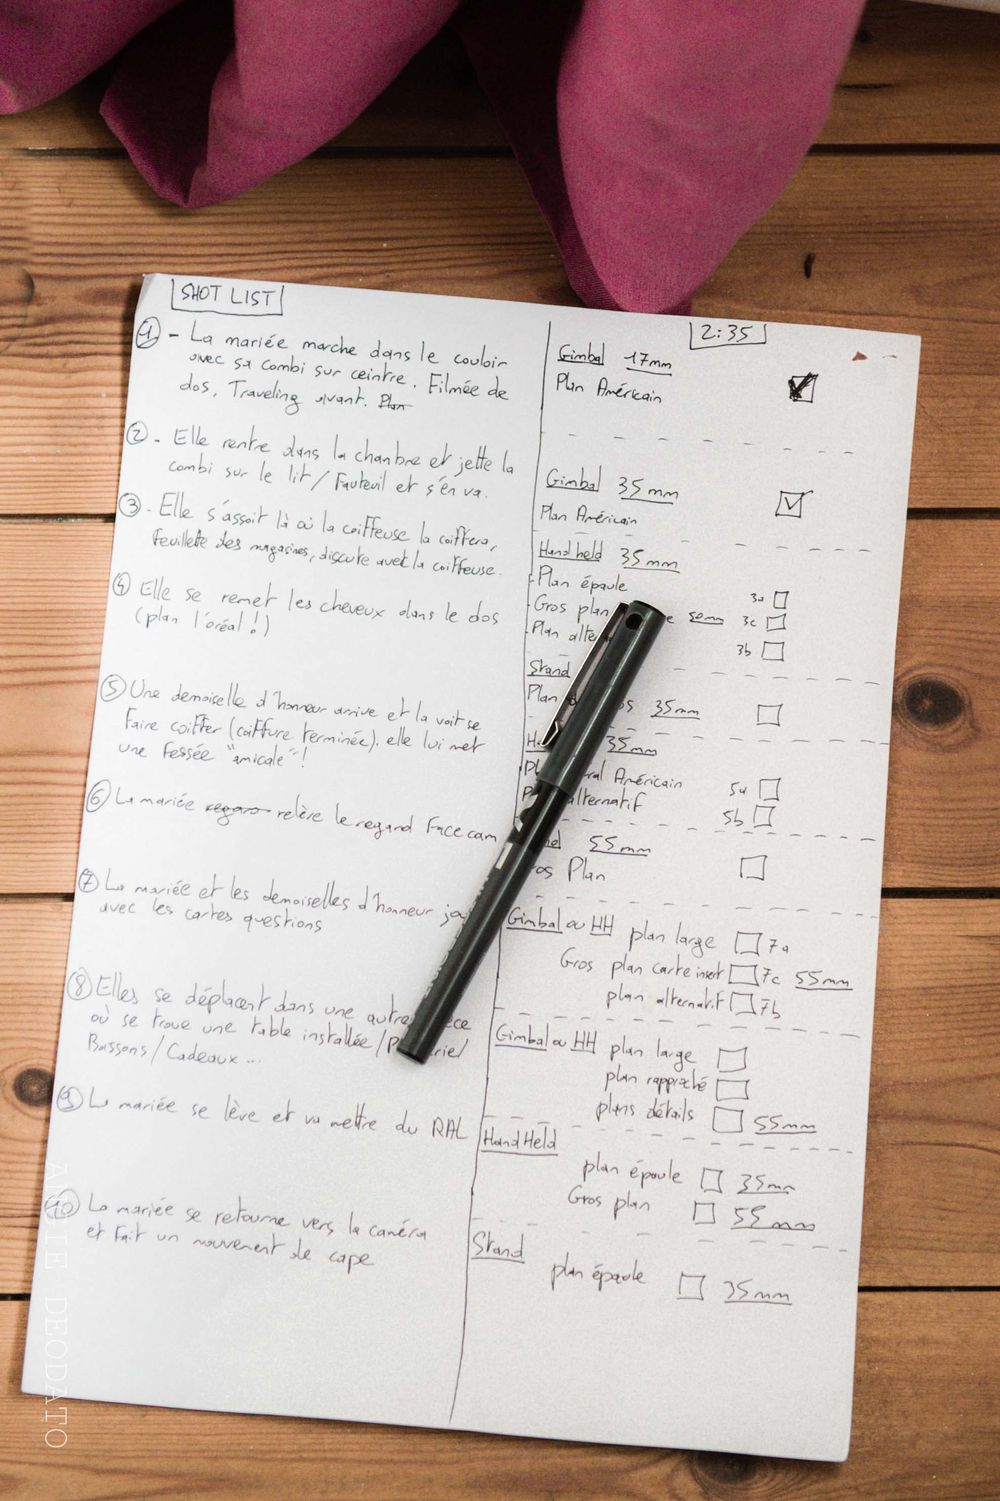 SHOT LIST
① - La mariée marche dans le couloir
avec sa combi sur ceintre. Filmée de
dos, Traveling avant. Plan
② - Elle rentre dans la chambre et jette la
combi sur le lit / Fauteuil et s'en va.
③ - Elle s'assoit là où la coiffeuse la coiffera,
feuillette des magazines, discute avec la coiffeuse.
④ Elle se remet les cheveux dans le dos
(plan l'oréal !)
⑤ Une demoiselle d'honneur arrive et la voit se
faire coiffer (coiffure terminée), elle lui met
une fessée "amicale" !
⑥ La mariée regars relère le regard Face cam
⑦ La mariée et les demoiselles d'honneur
avec les cartes questions
⑧ Elles se déplacent dans une autre
où se trouve une table installée /
Boissons / Cadeaux ...
⑨ La mariée se lève et va mettre du RAL
⑩ La mariée se retourne vers la caméra
et fait un mouvement de cape
2:35
Gimbal 17mm
Plan Américain
Gimbal 35mm
Plan Américain
Handheld 35mm
- Plan épaule 3a
- Gros plan 50mm 3c
- Plan 3b
Stand
Plan 35mm
35mm
Américain 5a
alternatif 5b
55mm
Gros Plan
Gimbal ou HH plan large 7a
Gros plan carte insert 7c 55mm
plan alternatif 7b
Gimbal ou HH plan large
plan rapproché
plans détails 55mm
HandHeld
plan épaule 35mm
Gros plan 55mm
Stand
plan épaule 35mm
ANGIE DEODATO